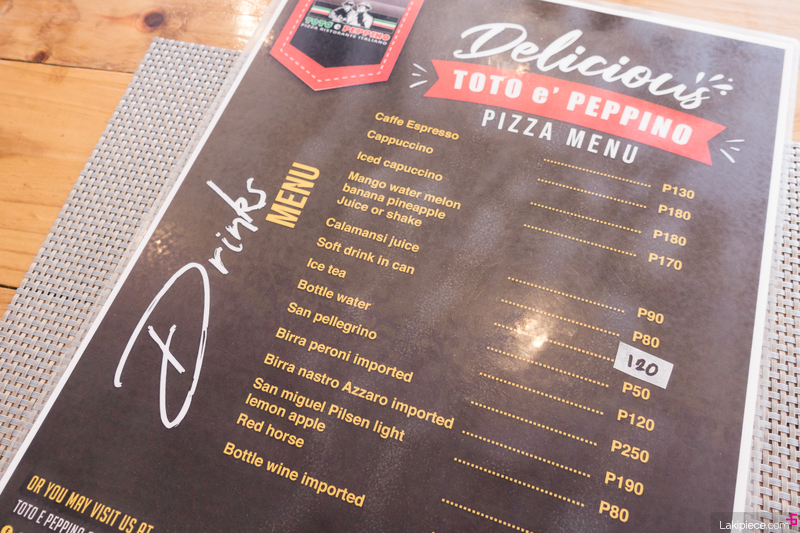 TOTO e PEPPINO
PIZZA RISTORANTE ITALIANO
Delicious
TOTO e' PEPPINO
PIZZA MENU
Drinks
MENU
Caffe Espresso P130
Cappuccino P180
Iced capuccino P180
Mango water melon P170
banana pineapple
Juice or shake
Calamansi juice P90
Soft drink in can P80
Ice tea 120
Bottle water P50
San pellegrino P120
Birra peroni imported P250
Birra nastro Azzaro imported P190
San miguel Pilsen light P80
lemon apple
Red horse
Bottle wine imported
OR YOU MAY VISIT US AT
TOTO E PEPPINO
Lakipiece.com